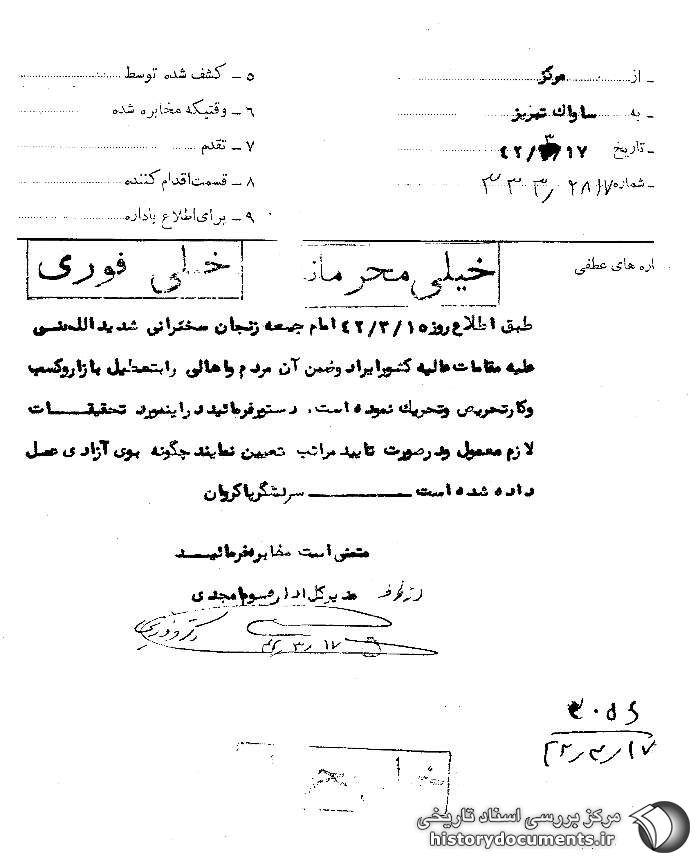 از مرکز
به ساواک تبریز
تاریخ ۴۲/۳/۱۷
شماره ۳۳۳/۲۸۱۷
۵ – کشف شده توسط
۶ – وقتیکه مخابره شده
۷ – تقدم
۸ – قسمت اقدام کننده
۹ – برای اطلاع باداره
اره های عطفی
خیلی محرمانه
خیلی فوری
طبق اطلاع روز ۴۲/۳/۱۵ امام جمعه زنجان سخنرانی شدید اللحنی
علیه مقامات عالیه کشور ایراد وضمن آن مردم واهالی رابتعطیل بازاروکسب
وکارتحریص وتحریک نموده است. دستورفرمائید دراینمورد تحقیقات
لازم معمول ودرصورت تایید مراتب تعیین نمایند چگونه بوی آزادی عمل
داده شده است ــــــــ سرلشگرپاکروان
متمنی است مخابره فرمائیـــد
از طرف مدیرکل اداره سوم امجدی
۴۲/۳/۱۷
۴۲/۳/۱۷
مرکز بررسی اسناد تاریخی
historydocuments.ir